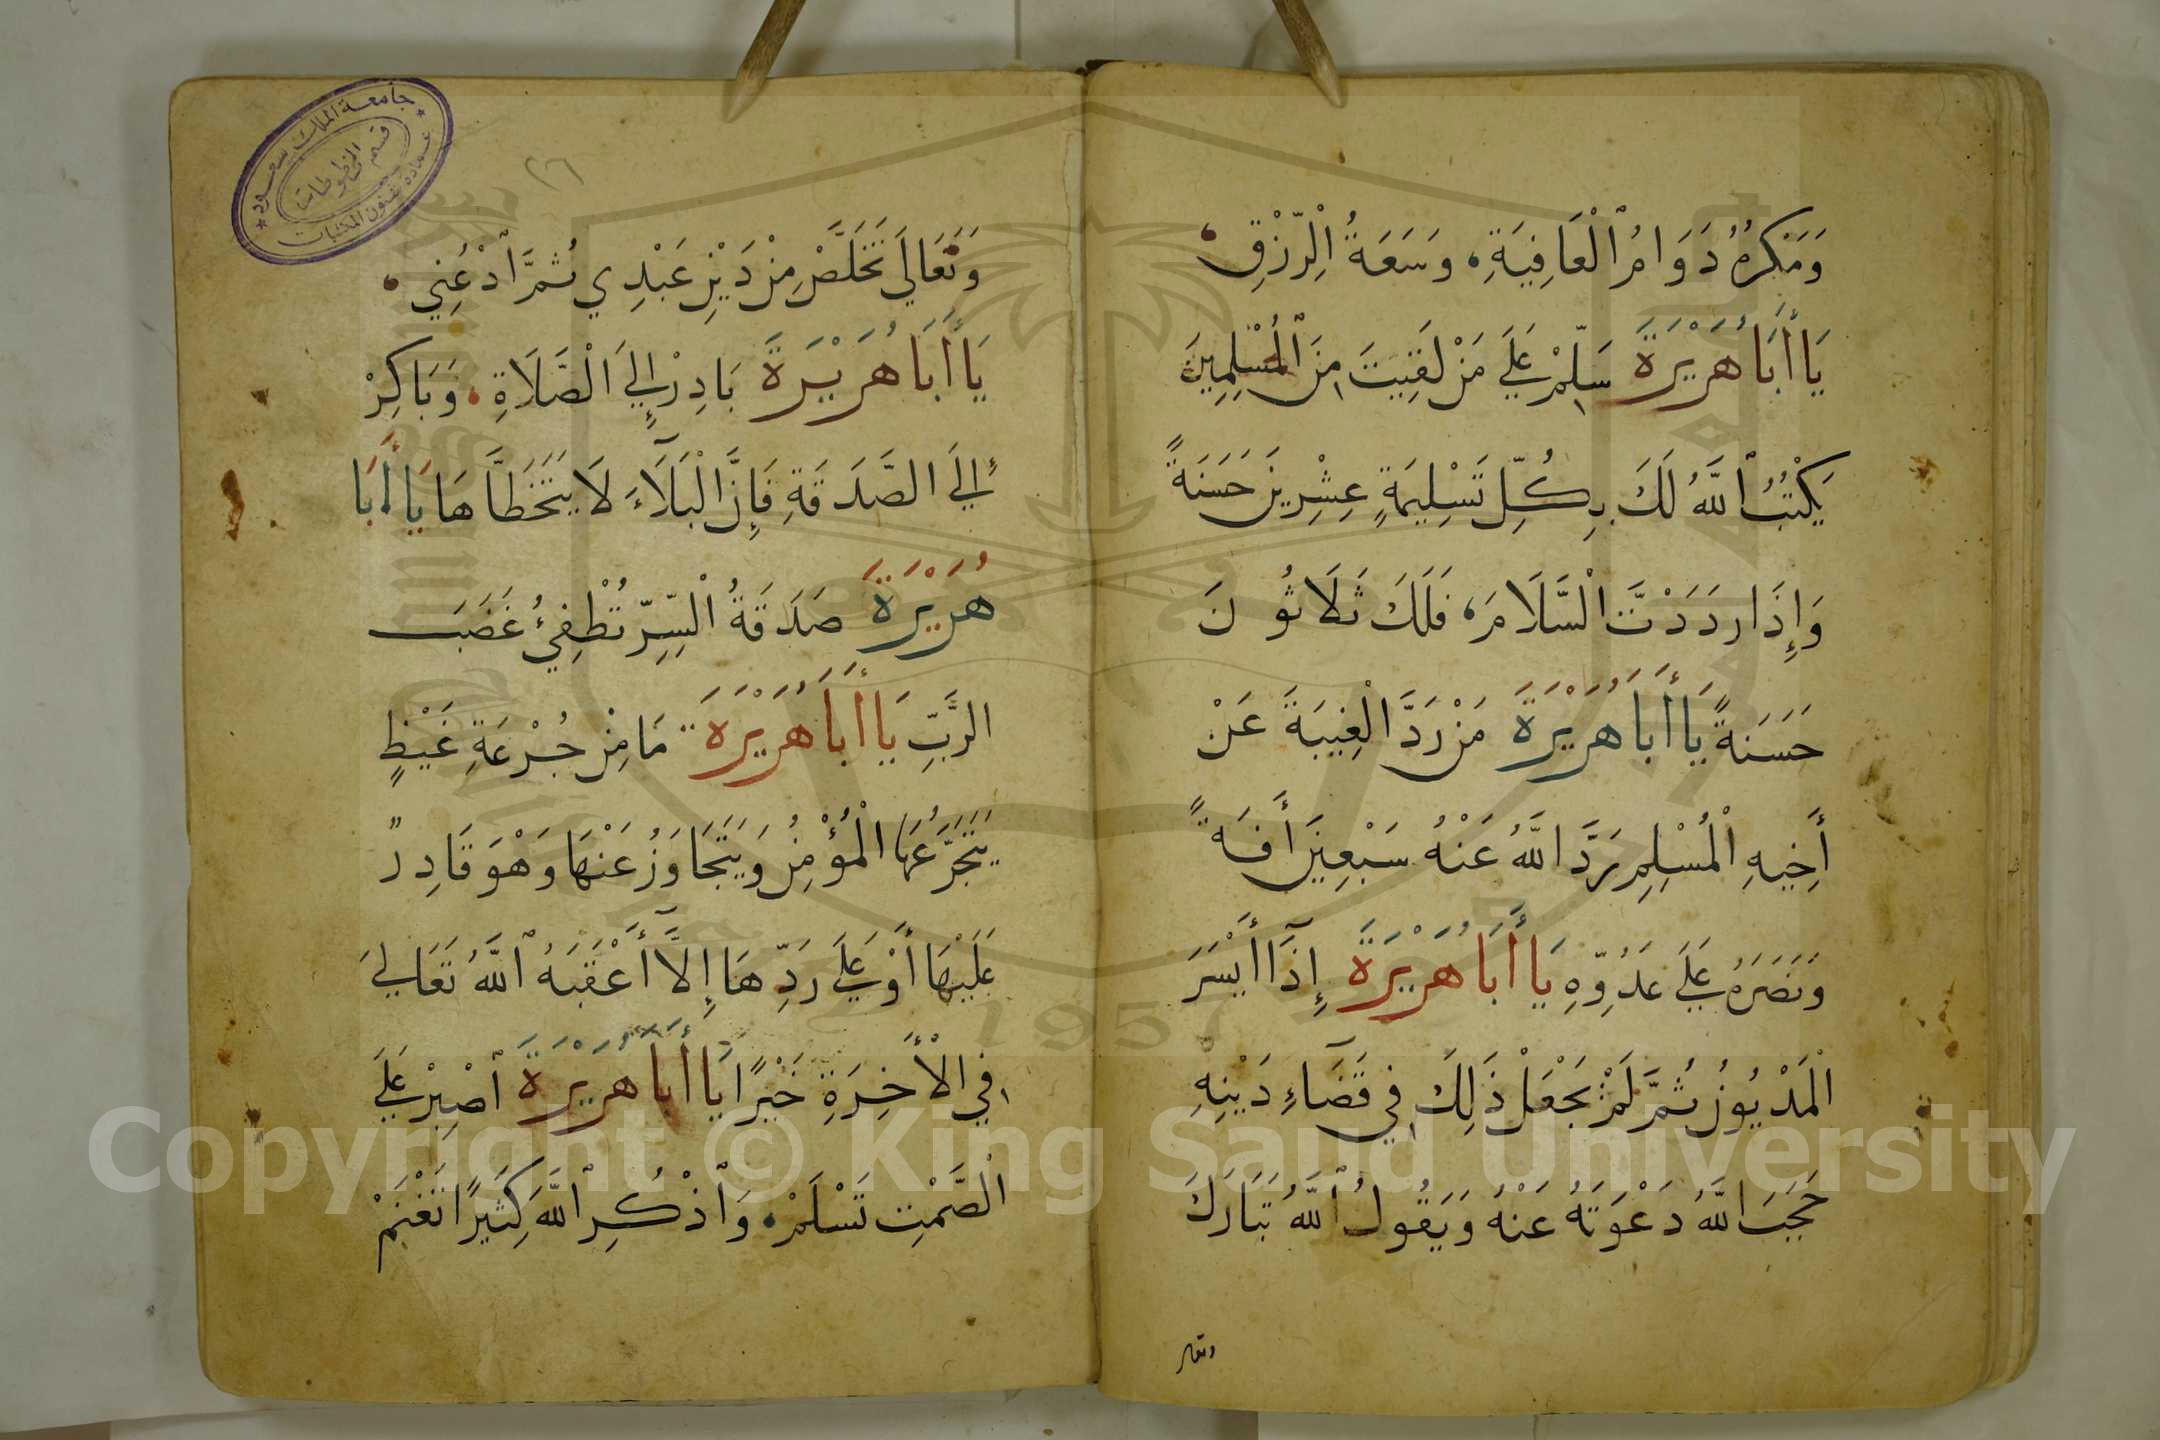 وَمَكْرُهُ دَوَامُ ٱلْعَافِيَةِ، وَسَعَةُ الْرِّزْقِ،
يَا أَبَا هُرَيْرَةَ سَلِّمْ عَلَى مَنْ لَقِيتَ مِنَ ٱلْمُسْلِمِينَ
يَكْتُبُ ٱللَّهُ لَكَ بِكُلِّ تَسْلِيمَةٍ عِشْرِينَ حَسَنَةً
وَإِذَا رَدَدْتَ الْسَّلَامَ، فَلَكَ ثَلَاثُونَ
حَسَنَةً يَا أَبَا هُرَيْرَةَ مَنْ رَدَّ الْغِيبَةَ عَنْ
أَخِيهِ الْمُسْلِمِ رَدَّ اللَّهُ عَنْهُ سَبْعِينَ أَفَةً
وَنَصَرَهُ عَلَى عَدُوِّهِ يَا أَبَا هُرَيْرَةَ إِذَآ أَيْسَرَ
الْمَدْيُونُ ثُمَّ لَمْ يَجْعَلْ ذَلِكَ فِي قَضَآءِ دَيْنِهِ
حَجَبَ اللَّهُ دَعْوَتَهُ عَنْهُ وَيَقُولُ ٱللَّهُ تَبَارَكَ
وتعالى
وَتَعَالَى تَخَلَّصْ مِنْ دَيْنِ عَبْدِي ثُمَّ ٱدْعُنِي،
يَا أَبَا هُرَيْرَةَ بَادِرْ إِلَى الْصَّلَاةِ، وَبَاكِرْ
إِلَى الصَّدَقَةِ فَإِنَّ الْبَلَآءَ لَا يَتَخَطَّاهَا يَا أَبَا
هُرَيْرَةَ صَدَقَةُ الْسِّرِّ تُطْفِئُ غَضَبَ
الرَّبِّ يَا أَبَا هُرَيْرَةَ مَا مِنْ جُرْعَةِ غَيْظٍ
يَتَجَرَّعُهَا الْمُؤْمِنُ وَيَتَجَاوَزُ عَنْهَا وَهْوَ قَادِرٌ
عَلَيْهَا أَوْ عَلَى رَدِّهَا إِلَّآ أَعْقَبَهُ ٱللَّهُ تَعَالَى
فِي الْأَخِرَةِ خَيْرًا يَا أَبَا هُرَيْرَةَ ٱصْبِرْ عَلَى
الْصَّمْتِ تَسْلَمْ، وَٱذْكُرِ ٱللَّهَ كَثِيرًا تَغْنَمْ
٢٦
جامعة الملك سعود
عمادة شئون المكتبات
قسم المخطوطات
1957
Copyright © King Saud University